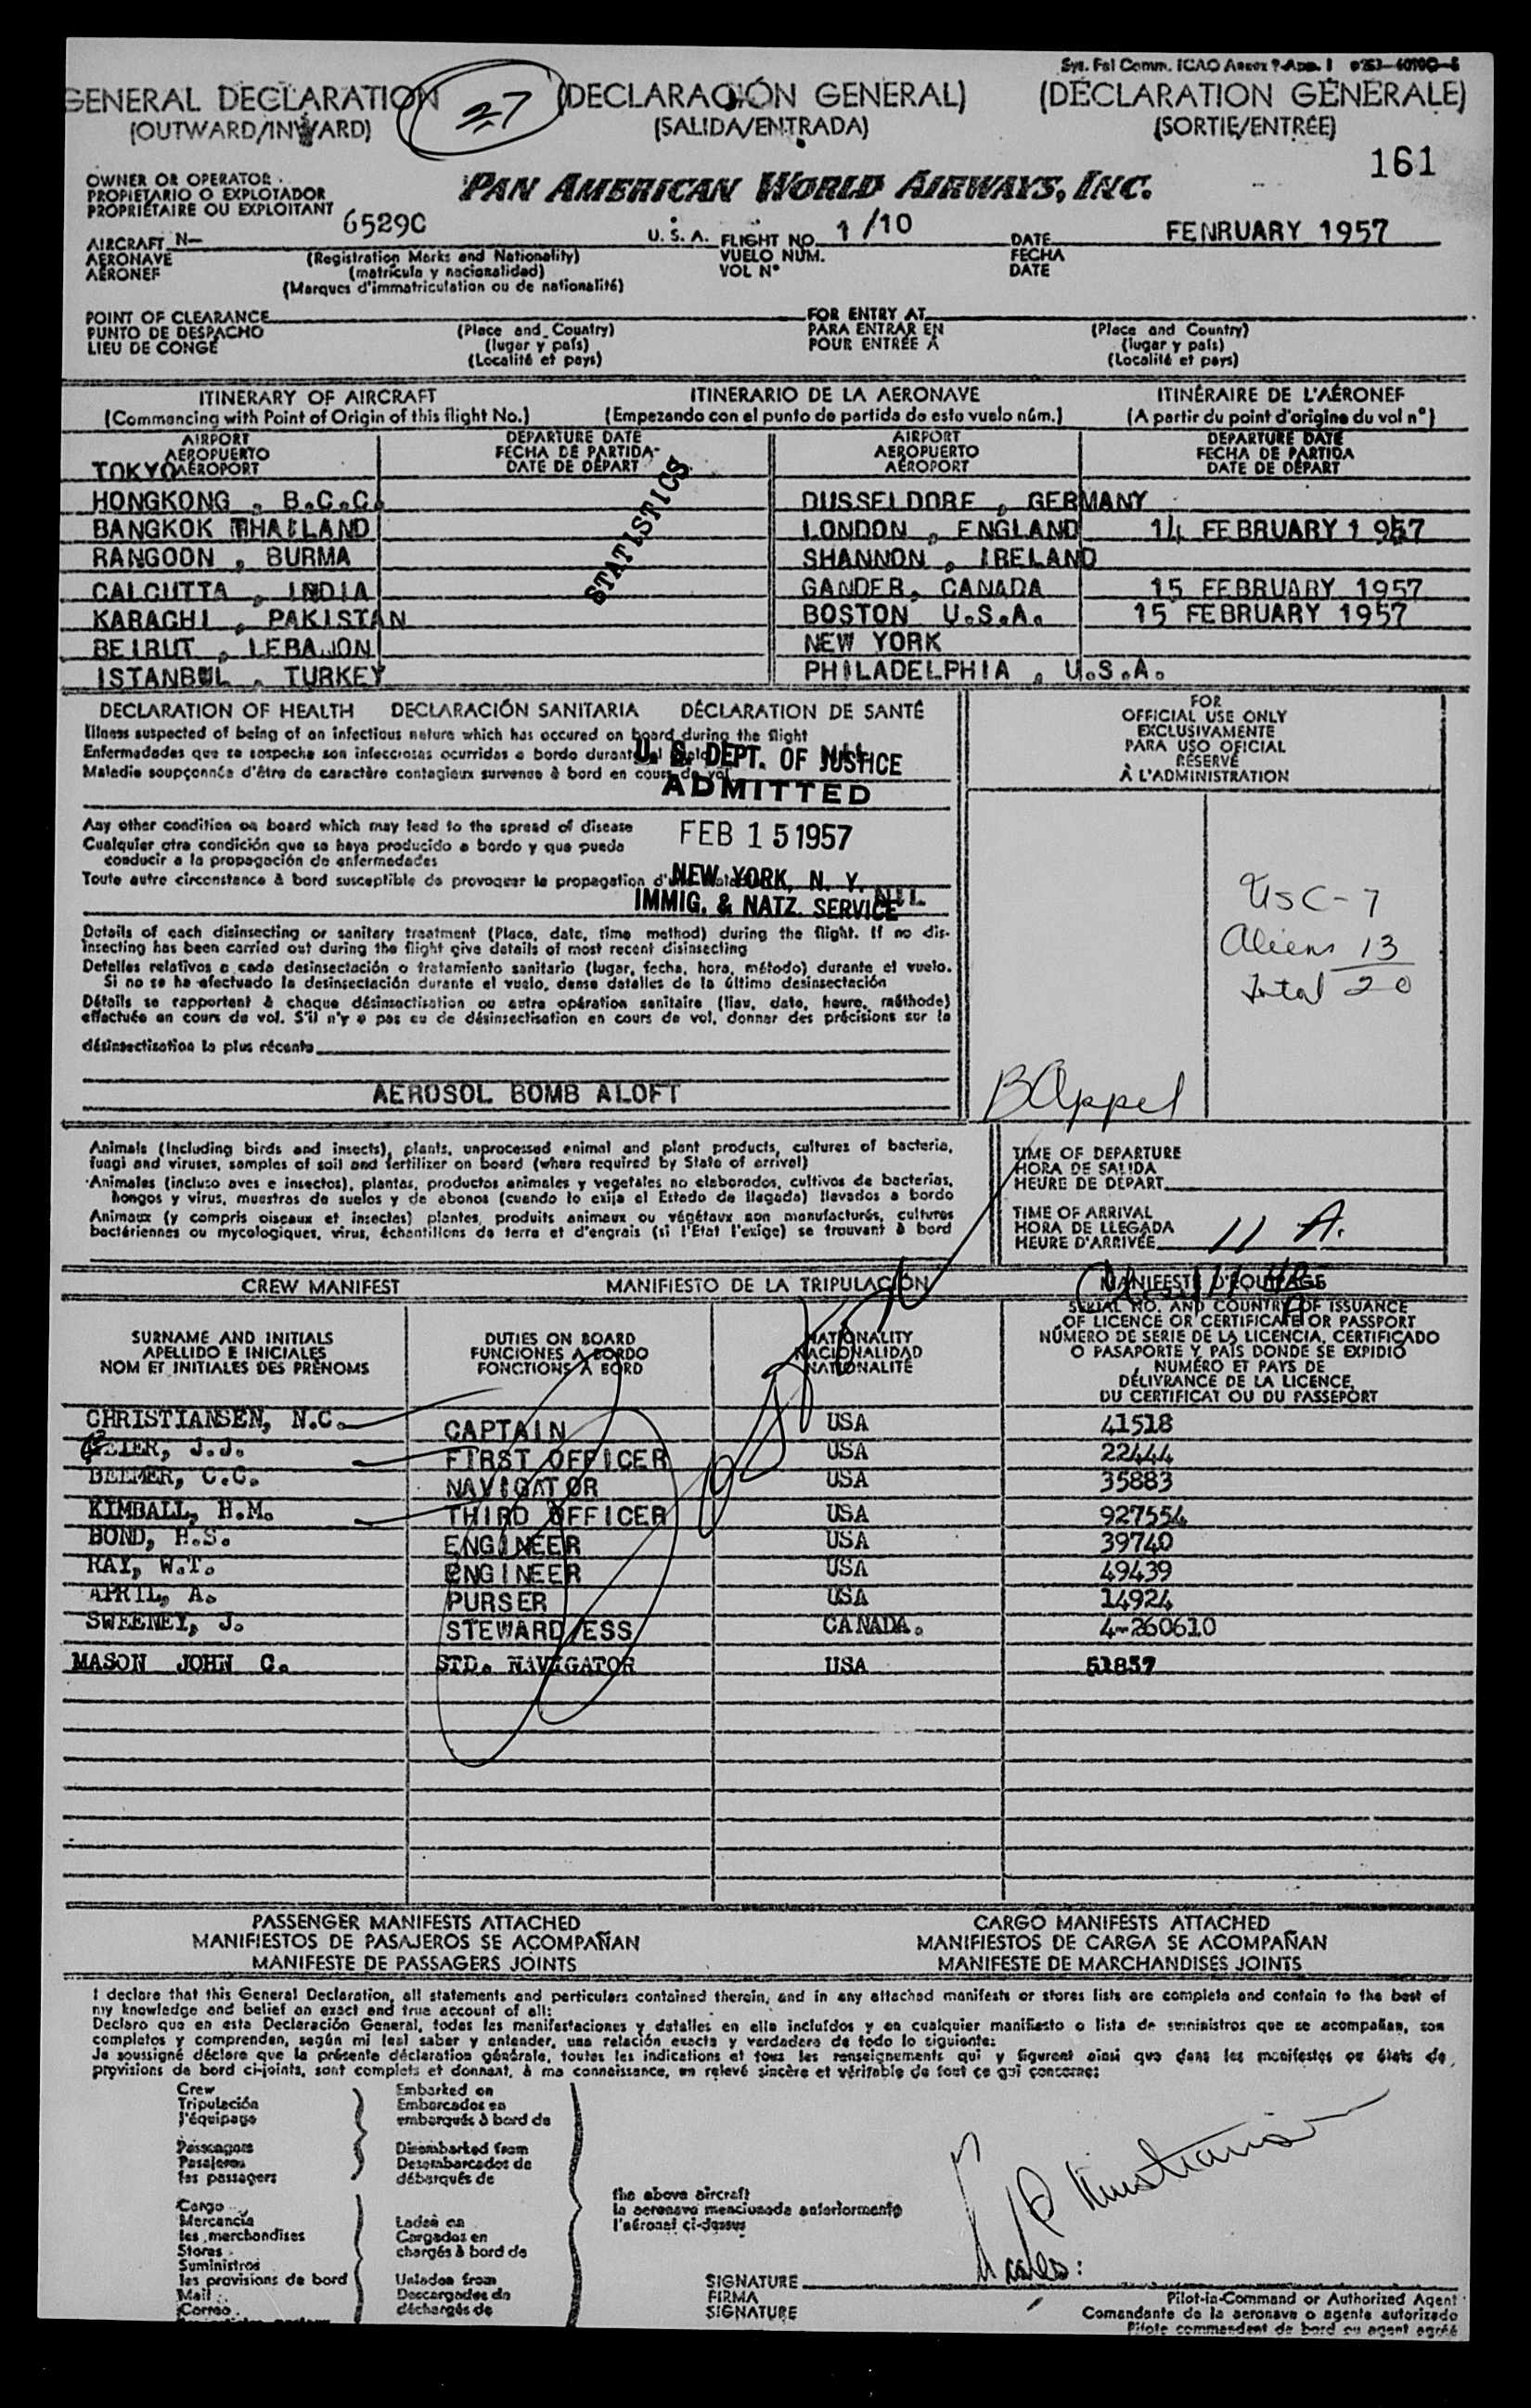 Sys. Fal Comm. ICAO Annex 9-App. 1
GENERAL DECLARATION (DECLARACIÓN GENERAL) (DÉCLARATION GÉNÉRALE)
27
(OUTWARD/INWARD) (SALIDA/ENTRADA) (SORTIE/ENTRÉE)
161
OWNER OR OPERATOR
PROPIETARIO O EXPLOTADOR
PROPRIÉTAIRE OU EXPLOITANT
PAN AMERICAN WORLD AIRWAYS, INC.
AIRCRAFT N- 6529C U. S. A. FLIGHT NO. 1/10 DATE FENRUARY 1957
AERONAVE (Registration Marks and Nationality) VUELO NÚM. FECHA
AÉRONEF (matrícula y nacionalidad) VOL N° DATE
(Marques d'immatriculation ou de nationalité)
POINT OF CLEARANCE FOR ENTRY AT
PUNTO DE DESPACHO (Place and Country) PARA ENTRAR EN (Place and Country)
LIEU DE CONGÉ (lugar y país) POUR ENTRÉE À (lugar y país)
(Localité et pays) (Localité et pays)
ITINERARY OF AIRCRAFT ITINERARIO DE LA AERONAVE ITINÉRAIRE DE L'AÉRONEF
(Commencing with Point of Origin of this flight No.) (Empezando con el punto de partida de este vuelo núm.) (A partir du point d'origine du vol n°)
AIRPORT DEPARTURE DATE AIRPORT DEPARTURE DATE
AEROPUERTO FECHA DE PARTIDA AEROPUERTO FECHA DE PARTIDA
TOKYO AÉROPORT DATE DE DÉPART AÉROPORT DATE DE DÉPART
STATISTICS
HONGKONG , B.C.C. DUSSELDORF , GERMANY
BANGKOK THAILAND LONDON , ENGLAND 14 FEBRUARY 1957
RANGOON , BURMA SHANNON , IRELAND
CALCUTTA , INDIA GANDER, CANADA 15 FEBRUARY 1957
KARACHI , PAKISTAN BOSTON U.S.A. 15 FEBRUARY 1957
BEIRUT , LEBANON NEW YORK
ISTANBUL , TURKEY PHILADELPHIA , U.S.A.
DECLARATION OF HEALTH DECLARACIÓN SANITARIA DÉCLARATION DE SANTÉ
FOR
OFFICIAL USE ONLY
EXCLUSIVAMENTE
PARA USO OFICIAL
RÉSERVÉ
À L'ADMINISTRATION
Illness suspected of being of an infectious nature which has occured on board during the flight
Enfermedades que se sospecha son infecciosas ocurridas a bordo durante el
Maladie soupçonnée d'être de caractère contagieux survenue à bord en cours de vol
NIL
U. S. DEPT. OF JUSTICE
ADMITTED
FEB 15 1957
NEW YORK, N. Y.
IMMIG. & NATZ. SERVICE
Any other condition on board which may lead to the spread of disease
Cualquier otra condición que se haya producido a bordo y que pueda
conducir a la propagación de enfermedades
Toute autre circonstance à bord susceptible de provoquer la propagation
NIL
Details of each disinsecting or sanitary treatment (Place, date, time method) during the flight. If no dis-
insecting has been carried out during the flight give details of most recent disinsecting
Detalles relativos a cada desinsectación o tratamiento sanitario (lugar, fecha, hora, método) durante el vuelo.
Si no se ha efectuado la desinsectación durante el vuelo, dense detalles de la última desinsectación
Détails se rapportant à chaque désinsectisation ou autre opération sanitaire (lieu, date, heure, méthode)
effectuée en cours de vol. S'il n'y a pas eu de désinsectisation en cours de vol, donner des précisions sur la
désinsectisation la plus récente
AEROSOL BOMB ALOFT
USC - 7
Aliens 13
Total 20
B Appel
Animals (including birds and insects), plants, unprocessed animal and plant products, cultures of bacteria,
fungi and viruses, samples of soil and fertilizer on board (where required by State of arrival)
Animales (incluso aves e insectos), plantas, productos animales y vegetales no elaborados, cultivos de bacterias,
hongos y virus, muestras de suelos y de abonos (cuando lo exija el Estado de llegada) llevados a bordo
Animaux (y compris oiseaux et insectes) plantes, produits animaux ou végétaux non manufacturés, cultures
bactériennes ou mycologiques, virus, échantillons de terre et d'engrais (si l'Etat l'exige) se trouvant à bord
TIME OF DEPARTURE
HORA DE SALIDA
HEURE DE DÉPART
TIME OF ARRIVAL
HORA DE LLEGADA
HEURE D'ARRIVÉE 11 A.
CREW MANIFEST MANIFIESTO DE LA TRIPULACIÓN MANIFESTE D'ÉQUIPAGE
SURNAME AND INITIALS
APELLIDO E INICIALES
NOM ET INITIALES DES PRÉNOMS
DUTIES ON BOARD
FUNCIONES A BORDO
FONCTIONS À BORD
NATIONALITY
NACIONALIDAD
NATIONALITÉ
SERIAL NO. AND COUNTRY OF ISSUANCE
OF LICENCE OR CERTIFICATE OR PASSPORT
NÚMERO DE SERIE DE LA LICENCIA, CERTIFICADO
O PASAPORTE Y PAÍS DONDE SE EXPIDIÓ
NUMÉRO ET PAYS DE
DÉLIVRANCE DE LA LICENCE,
DU CERTIFICAT OU DU PASSEPORT
CHRISTIANSEN, N.C. CAPTAIN USA 41518
J.J. FIRST OFFICER USA 22444
C.C. NAVIGATOR USA 35883
KIMBALL, H.M. THIRD OFFICER USA 927554
BOND, H.S. ENGINEER USA 39740
RAY, W.T. ENGINEER USA 49439
APRIL, A. PURSER USA 14924
SWEENEY, J. STEWARD/ESS CANADA. 4-260610
MASON JOHN C. STD. NAVIGATOR USA 51857
PASSENGER MANIFESTS ATTACHED CARGO MANIFESTS ATTACHED
MANIFIESTOS DE PASAJEROS SE ACOMPAÑAN MANIFIESTOS DE CARGA SE ACOMPAÑAN
MANIFESTE DE PASSAGERS JOINTS MANIFESTE DE MARCHANDISES JOINTS
I declare that this General Declaration, all statements and particulars contained therein, and in any attached manifests or stores lists are complete and contain to the best of
my knowledge and belief an exact and true account of all:
Declaro que en esta Declaración General, todas las manifestaciones y detalles en ella incluídos y en cualquier manifiesto o lista de suministros que se acompañan, son
completos y comprenden, según mi leal saber y entender, una relación exacta y verdadera de todo lo siguiente:
Je soussigné déclare que la présente déclaration générale, toutes les indications et tous les renseignements qui y figurent ainsi que dans les manifestes ou états de
provisions de bord ci-joints, sont complets et donnent, à ma connaissance, un relevé sincère et véritable de tout ce qui concerne:
Crew
Tripulación
l'équipage
Passengers
Pasajeros
les passagers
Cargo
Mercancía
les merchandises
Stores
Suministros
les provisions de bord
Mail
Correo
Embarked on
Embarcados en
embarqués à bord de
Disembarked from
Desembarcados de
débarqués de
Laden on
Cargados en
chargés à bord de
Unladen from
Descargados de
déchargés de
the above aircraft
la aeronave mencionada anteriormente
l'aéronef ci-dessus
SIGNATURE
FIRMA
SIGNATURE
Pilot-in-Command or Authorized Agent
Comandante de la aeronave o agente autorizado
Pilote commandant de bord ou agent agréé